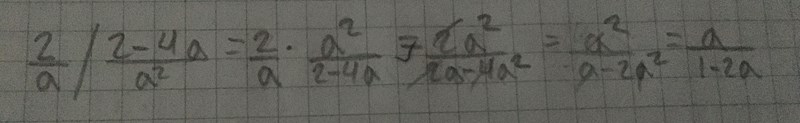 2/a / (2-4a)/a² = 2/a · a²/(2-4a) = 2a²/(2a-4a²) = a²/(a-2a²) = a/(1-2a)